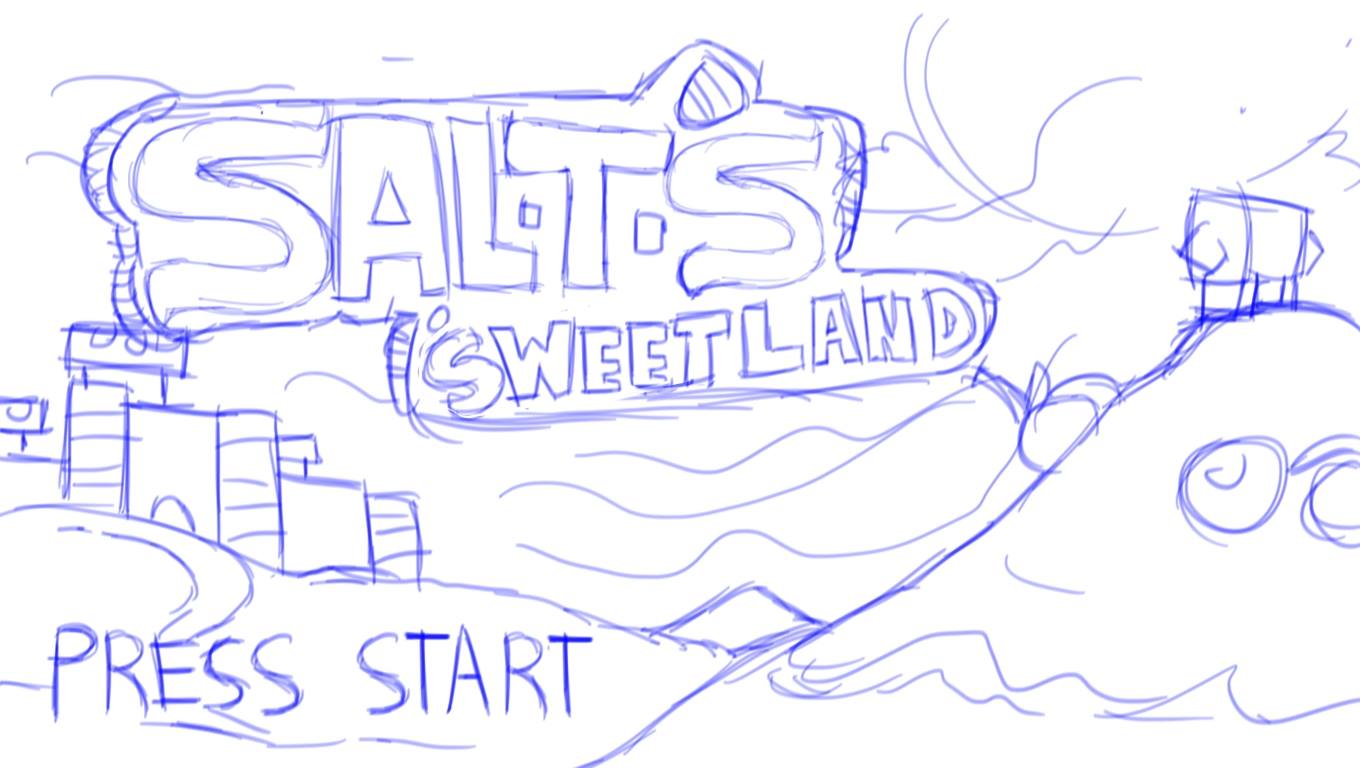 SALT'S
SWEETLAND
PRESS START